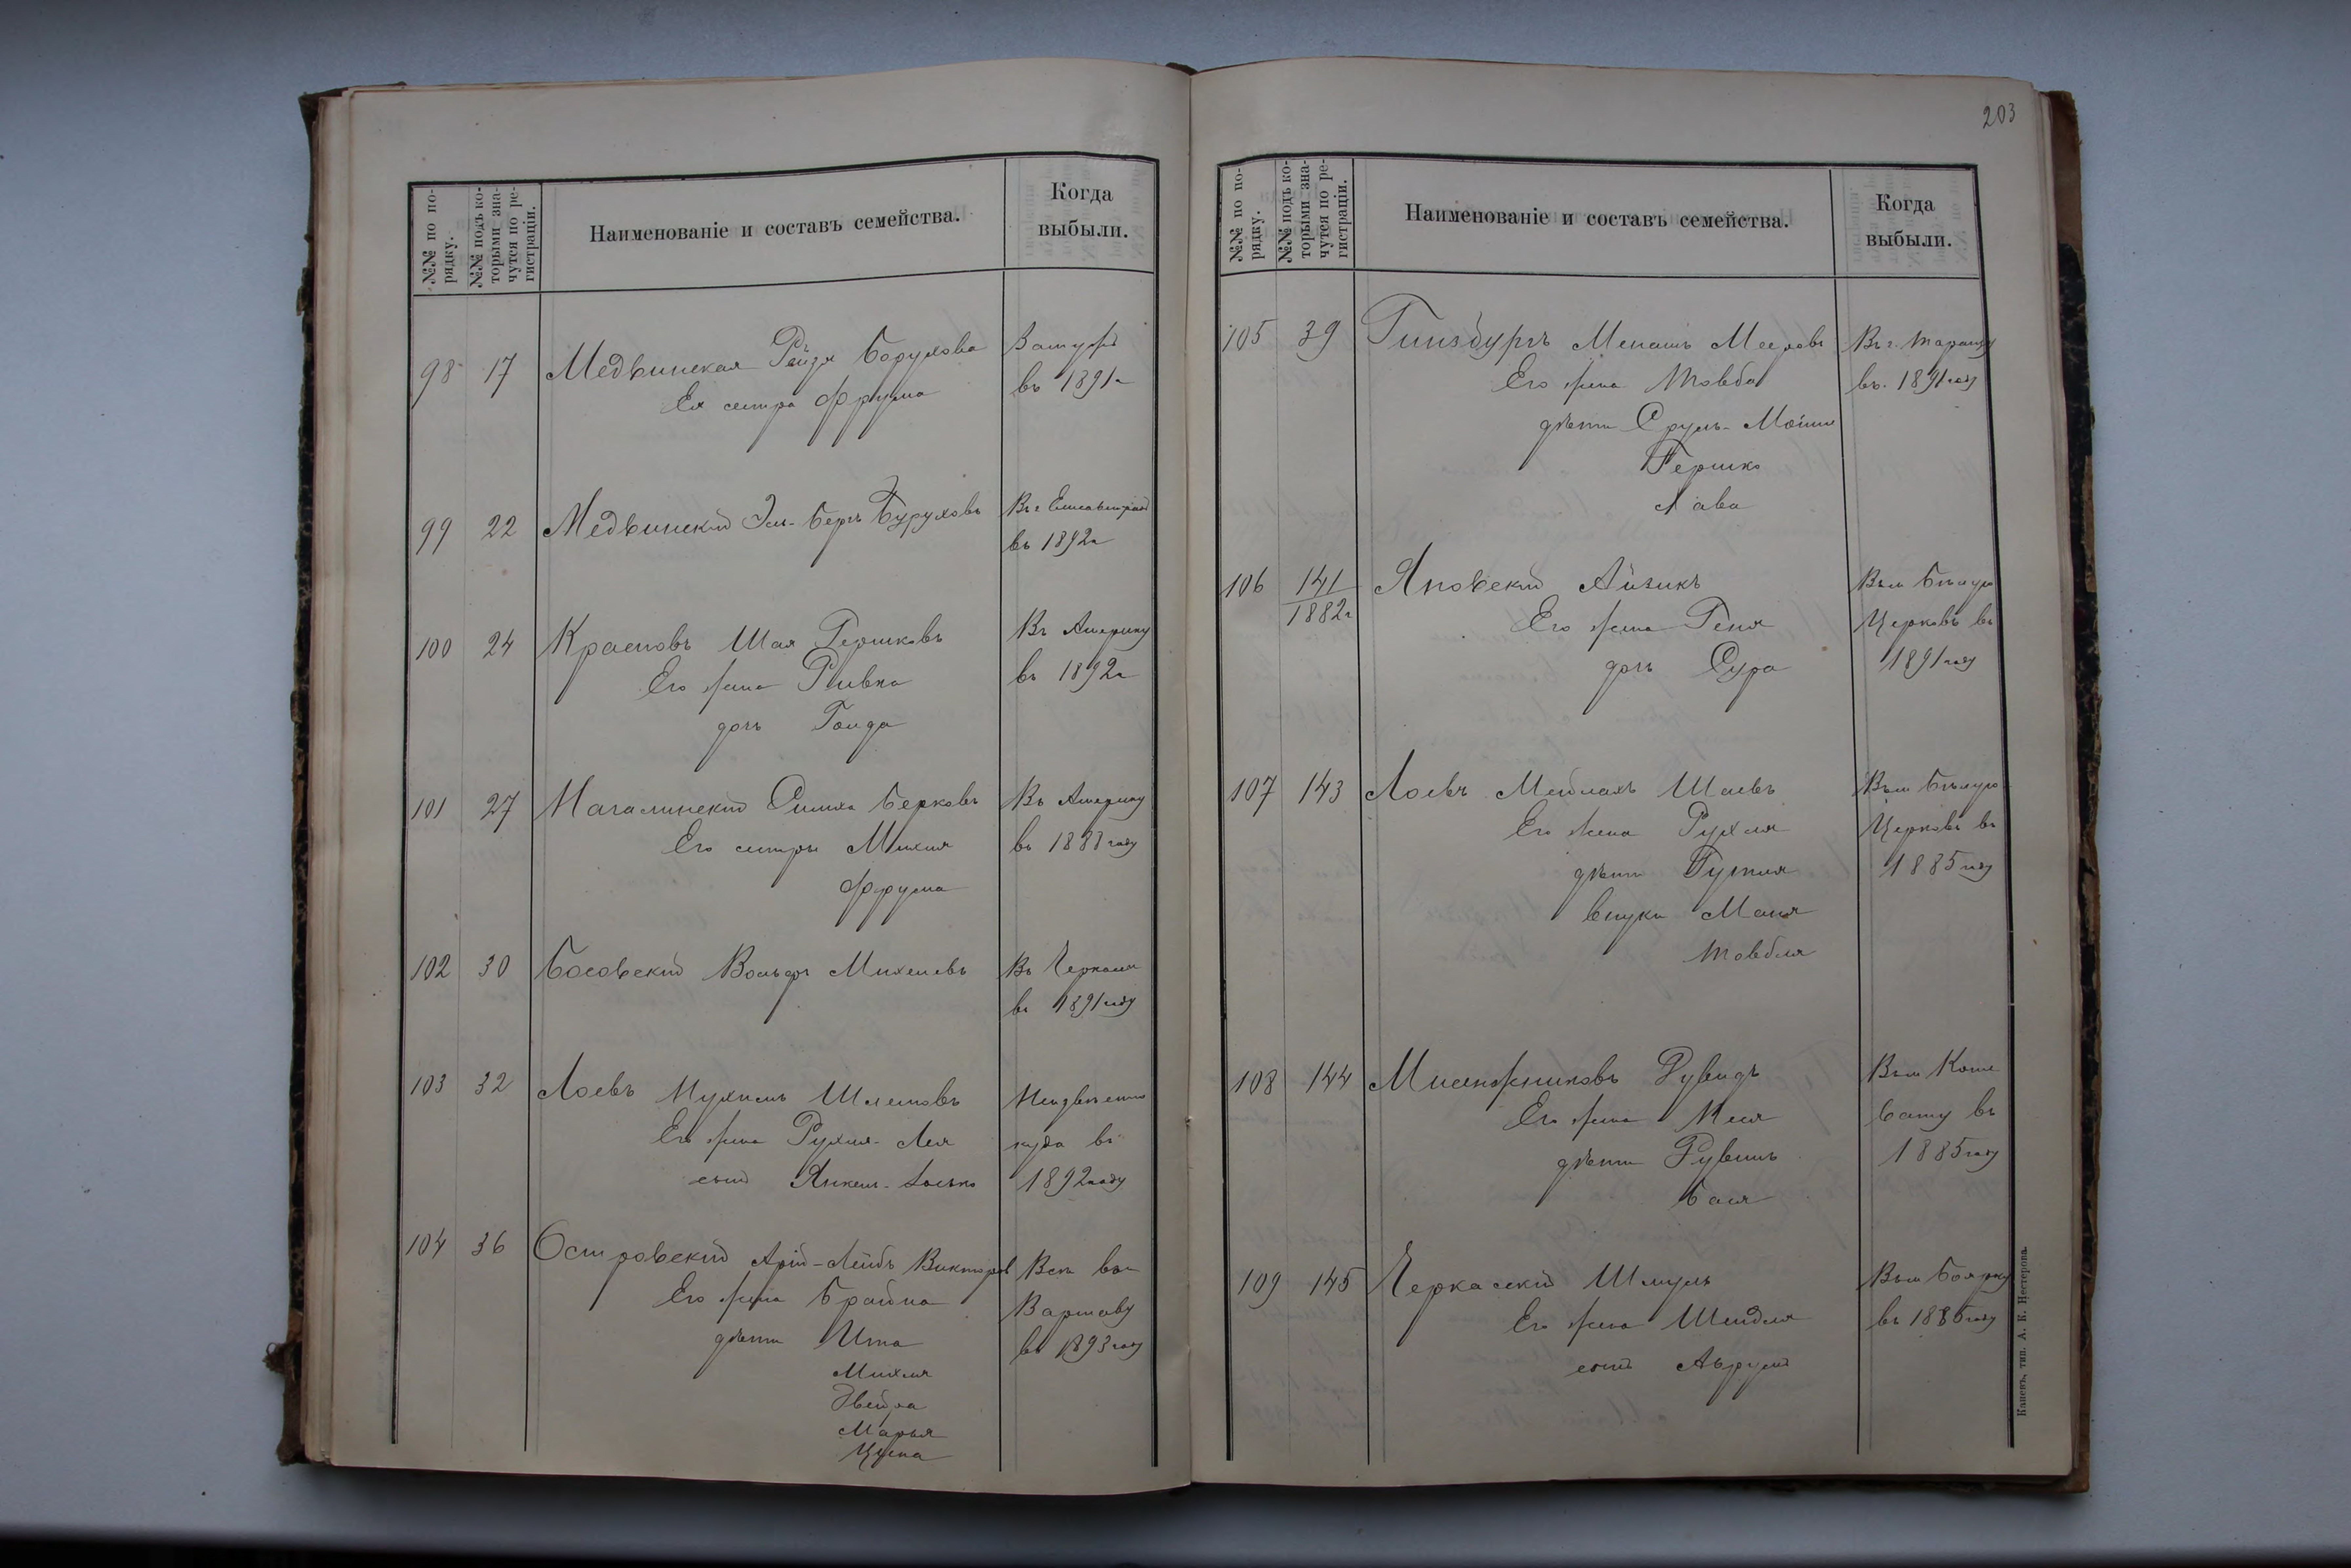 №№ по по-
рядку.
№№ подъ ко-
торыми зна-
чутся по ре-
гистраціи.
Наименованіе и составъ семейства.
Когда
выбыли.
98 17 Медвинская Рейзя Борухова
Ея сестра Фрума
Замужъ
въ 1891г
99 22 Медвинскій Буруховъ
Въ г Елисаветградъ
въ 1892г
100 24 Красновъ Шая Гершковъ
Его жена Ривка
дочь Гольда
Въ Америку
въ 1892г
101 27 Магалинскій Симха Берковъ
Его сестры Михля
Фрума
Въ Америку
въ 1888 году
102 30 Босовскій Вольфъ Михелевъ
Въ Черкасы
въ 1891 году
103 32 Лоевъ Нухимъ Шлемовъ
Его жена Рухля-Лея
сынъ Янкель-Іосько
Неизвѣстно
куда въ
1892 году
104 36 Островскій Арій-Лейбъ Викторов
Его жена Брайна
дѣти Ита
Михля
Двейра
Марья
Цупа
Всѣ въ г
Варшаву
въ 1893 году
203
№№ по по-
рядку.
№№ подъ ко-
торыми зна-
чутся по ре-
гистраціи.
Наименованіе и составъ семейства.
Когда
выбыли.
105 39 Гинзбургъ Менашъ Мееровъ
Его жена Товба
дѣти Сруль-Мойше
Гершко
Хава
Въ г. Таращу
въ 1891 году
106 141/1882г Яновскій Айзикъ
Его жена Геня
дочь Сура
Въ м Бѣлую
Церковь въ
1891 году
107 143 Лоевъ Мейлахъ Шаевъ
Его жена Рухля
дѣти
внуки Маня
Товбля
Въ м Бѣлую
Церковь въ
1885 году
108 144 Мисожниковъ
Его жена Неся
дѣти Рувинъ
Бася
Въ м Коше
вату въ
1885 году
109 145 Черкаскій Шмуль
Его жена Шейдля
сынъ Аврумъ
Въ м Боярку
въ 1885 году
Каневъ, тип. А. К. Нестерова.